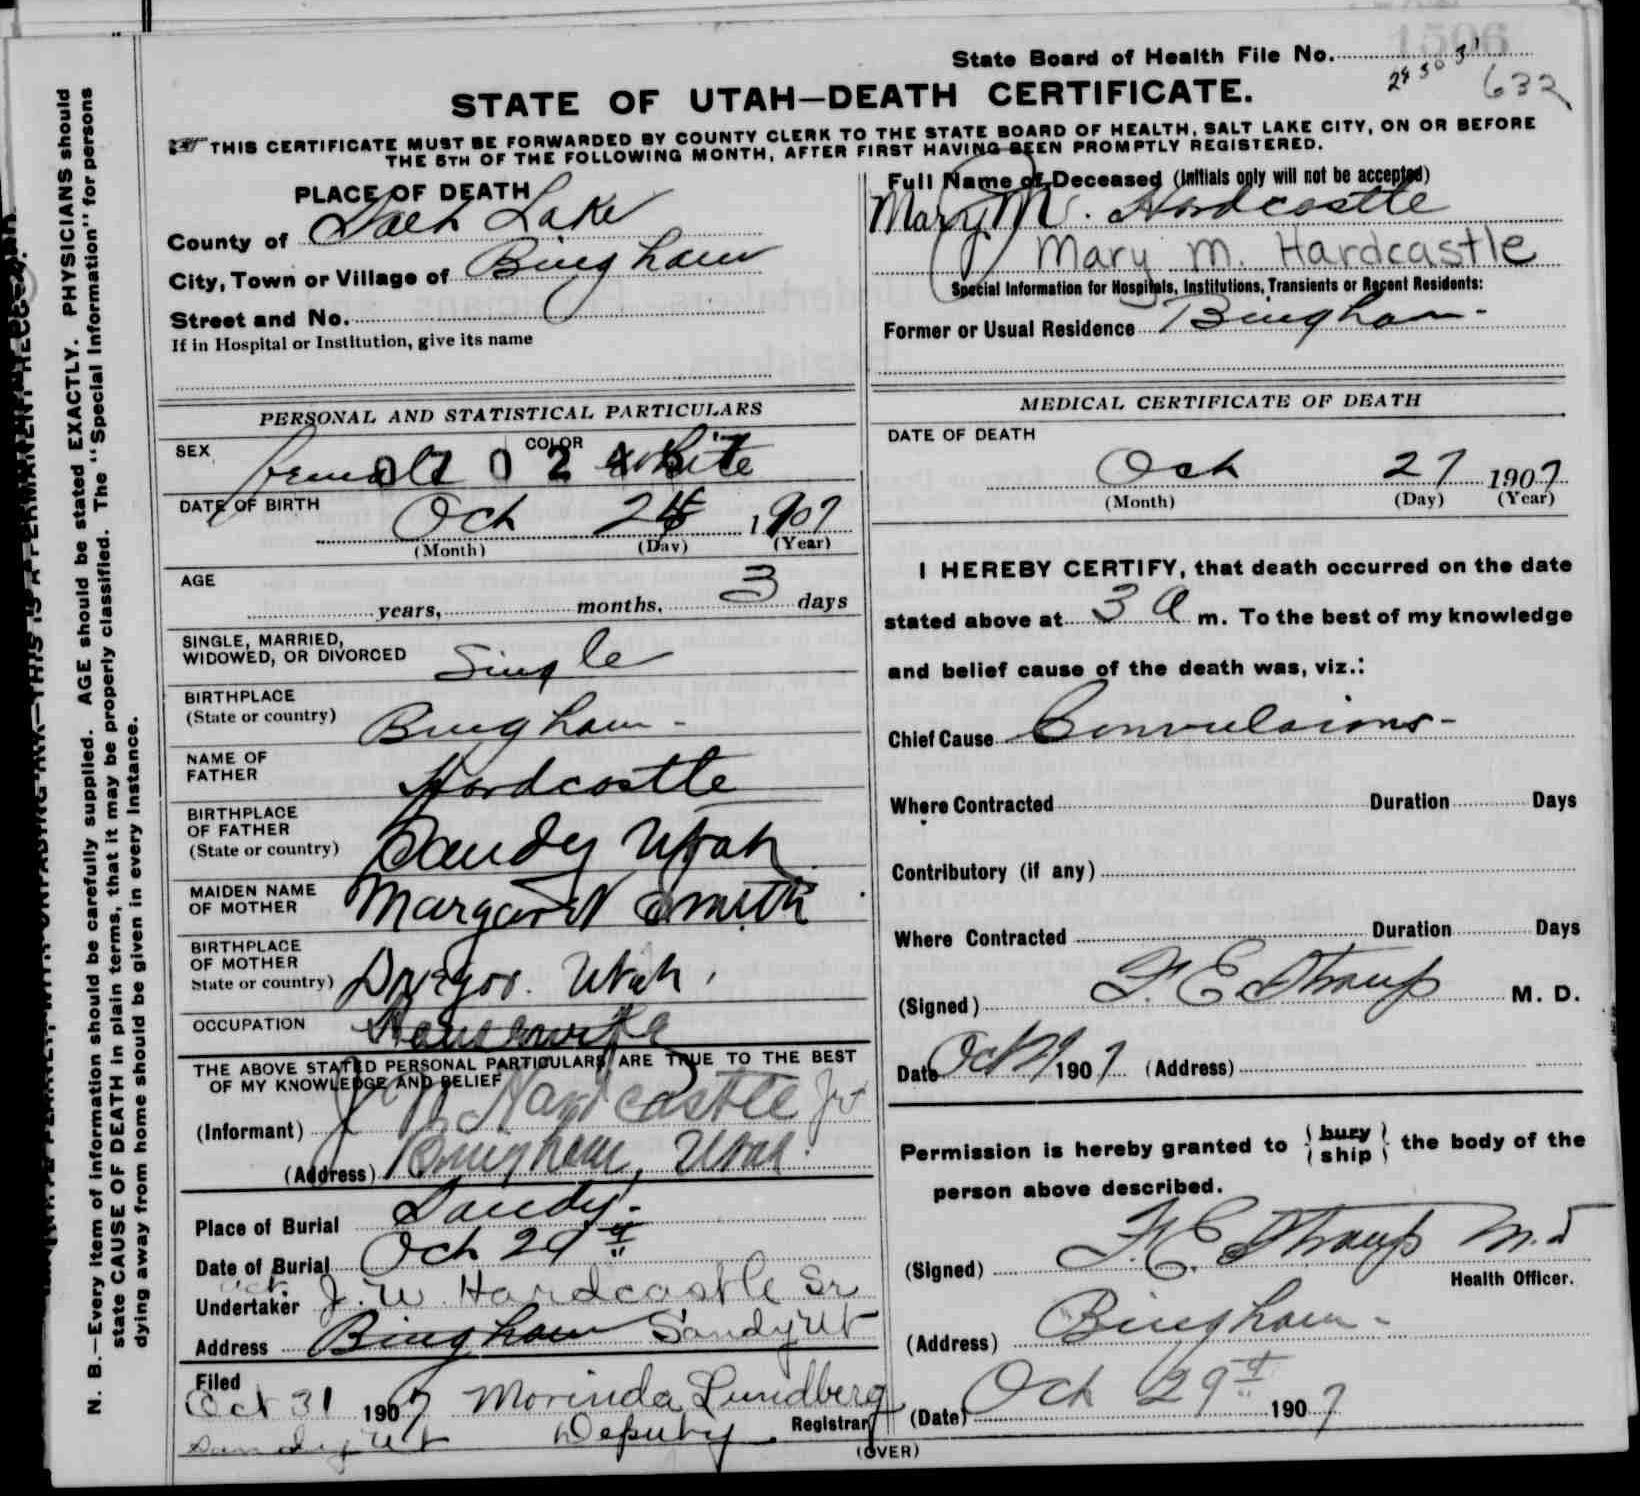 State Board of Health File No.
632
STATE OF UTAH—DEATH CERTIFICATE.
THIS CERTIFICATE MUST BE FORWARDED BY COUNTY CLERK TO THE STATE BOARD OF HEALTH, SALT LAKE CITY, ON OR BEFORE
THE 5TH OF THE FOLLOWING MONTH, AFTER FIRST HAVING BEEN PROMPTLY REGISTERED.
N. B.—Every item of information should be carefully supplied. AGE should be stated EXACTLY. PHYSICIANS should
state CAUSE OF DEATH in plain terms, that it may be properly classified. The "Special Information" for persons
dying away from home should be given in every instance.
PLACE OF DEATH
County of Salt Lake
City, Town or Village of Bingham
Street and No.
If in Hospital or Institution, give its name
Full Name of Deceased (Initials only will not be accepted)
Mary M. Hardcastle
Mary M. Hardcastle
Special Information for Hospitals, Institutions, Transients or Recent Residents:
Former or Usual Residence Bingham.
PERSONAL AND STATISTICAL PARTICULARS
SEX Female COLOR White
DATE OF BIRTH Oct 24 1907
(Month) (Day) (Year)
AGE
years, months, 3 days
SINGLE, MARRIED,
WIDOWED, OR DIVORCED Single
BIRTHPLACE
(State or country) Bingham
NAME OF
FATHER Hardcastle
BIRTHPLACE
OF FATHER
(State or country) Sandy Utah
MAIDEN NAME
OF MOTHER Margaret Smith
BIRTHPLACE
OF MOTHER
State or country) Utah
OCCUPATION Housewife
THE ABOVE STATED PERSONAL PARTICULARS ARE TRUE TO THE BEST
OF MY KNOWLEDGE AND BELIEF
(Informant) J W Hardcastle Jr
(Address) Bingham, Utah.
Place of Burial Sandy.
Date of Burial Oct 29
Undertaker J. W Hardcastle Sr
Address Bingham Sandy Ut
Filed
Oct 31 1907 Morinda Lundberg
Deputy Registrar
Sandy Ut
MEDICAL CERTIFICATE OF DEATH
DATE OF DEATH
Oct 27 1907
(Month) (Day) (Year)
I HEREBY CERTIFY, that death occurred on the date
stated above at 3 a m. To the best of my knowledge
and belief cause of the death was, viz.:
Chief Cause Convulsions
Where Contracted Duration Days
Contributory (if any)
Where Contracted Duration Days
(Signed) F. E. Straup M. D.
Date Oct 29 1907 (Address)
Permission is hereby granted to (bury
ship) the body of the
person above described.
(Signed) F. E. Straup M.D
Health Officer.
(Address) Bingham
(Date) Oct 29 1907
(OVER)